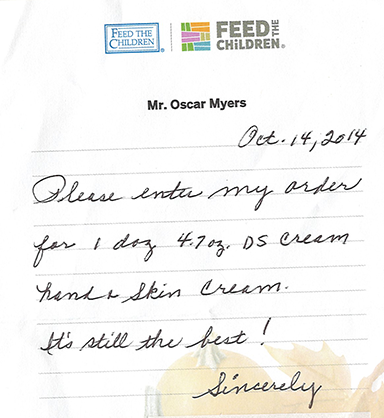 FEED THE
CHILDREN®
FEED THE
CHiLDREN®
Mr. Oscar Myers
Oct. 14, 2014
Please enter my order
for 1 doz 4.7oz. DS Cream
hand & Skin Cream.
It's still the best!
Sincerely